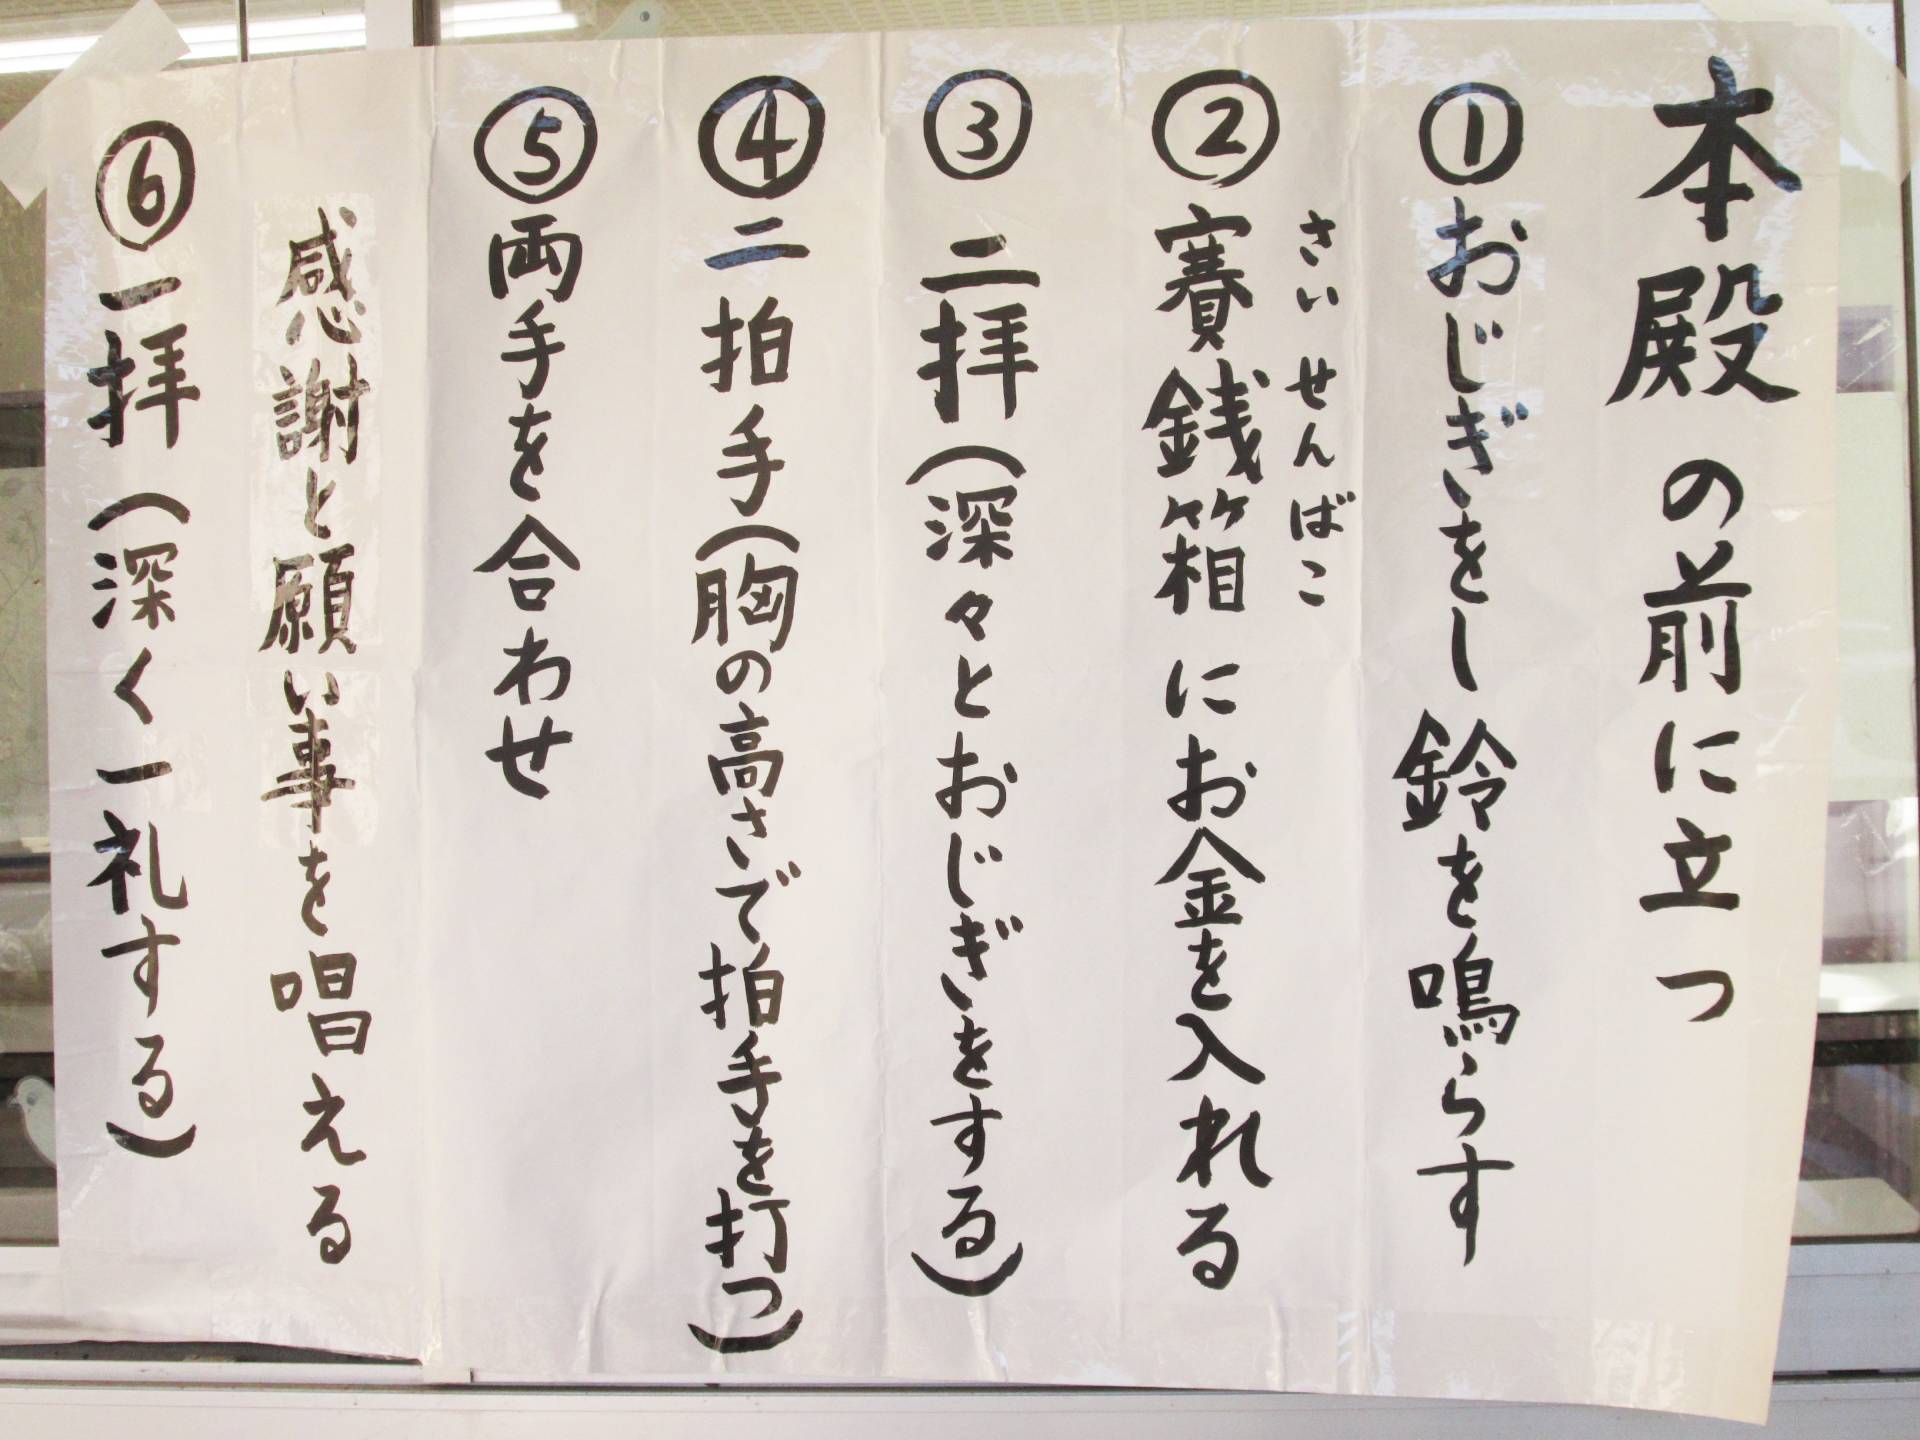 本殿の前に立つ
①おじぎをし鈴を鳴らす
さいせんばこ
②賽銭箱にお金を入れる
③二拝(深々とおじぎをする)
④二拍手(胸の高さで拍手を打つ)
⑤両手を合わせ
感謝と願い事を唱える
⑥一拝(深く一礼する)